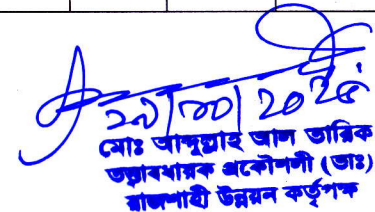 ২৯/১০/২০২৫
মোঃ আব্দুল্লাহ আল তারিক
তত্ত্বাবধায়ক প্রকৌশলী (ভাঃ)
রাজশাহী উন্নয়ন কর্তৃপক্ষ